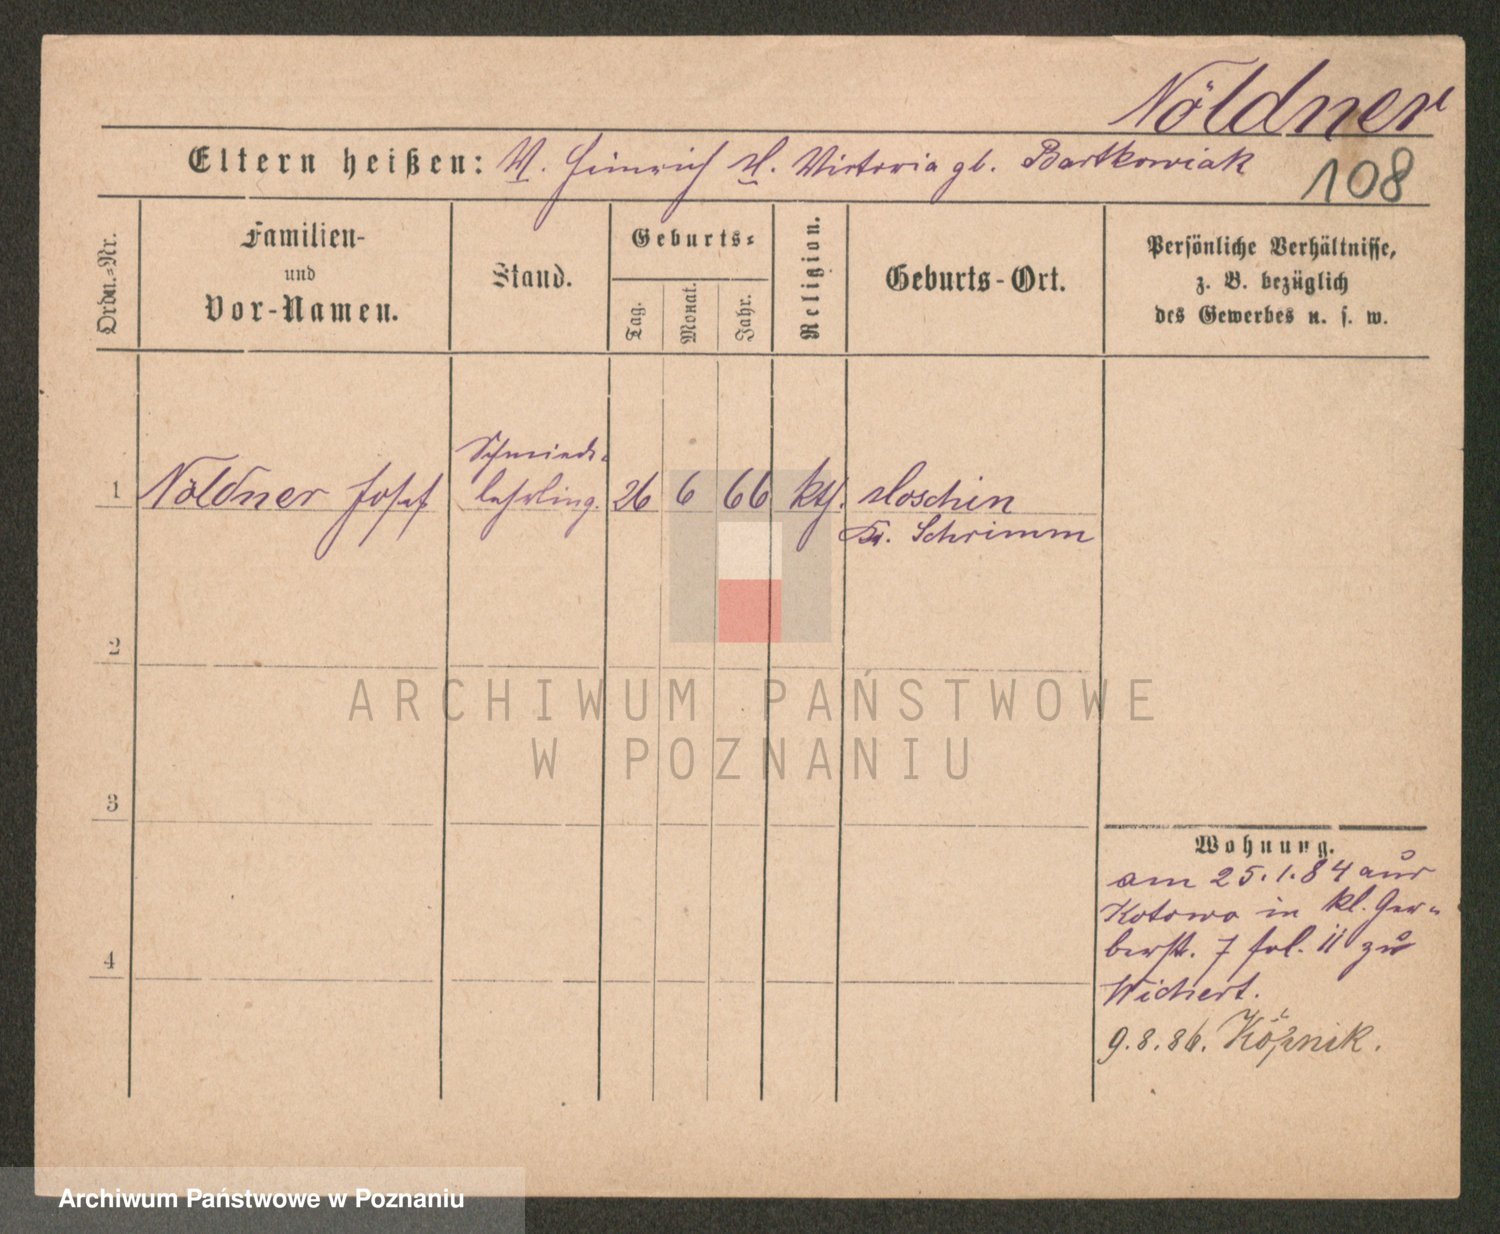 Nöldner
Eltern heißen: V. Heinrich M. Victoria gb. Bartkowiak
108
Ordn.=Nr.
Familien-
und
Vor-Namen.
Stand.
Geburts=
Tag.
Monat.
Jahr.
Religion.
Geburts-Ort.
Persönliche Verhältnisse,
z. B. bezüglich
des Gewerbes u. s. w.
Schmiede-
1 Nöldner Josef lehrling. 26 6 66 kth. Moschin
Kr. Schrimm
2
3
4
Wohnung.
am 25.1.84 aus
Kotowo in kl. Ger-
berstr. 7 fol. II zu
Wichert.
9.8.86.
ARCHIWUM PAŃSTWOWE
W POZNANIU
Archiwum Państwowe w Poznaniu